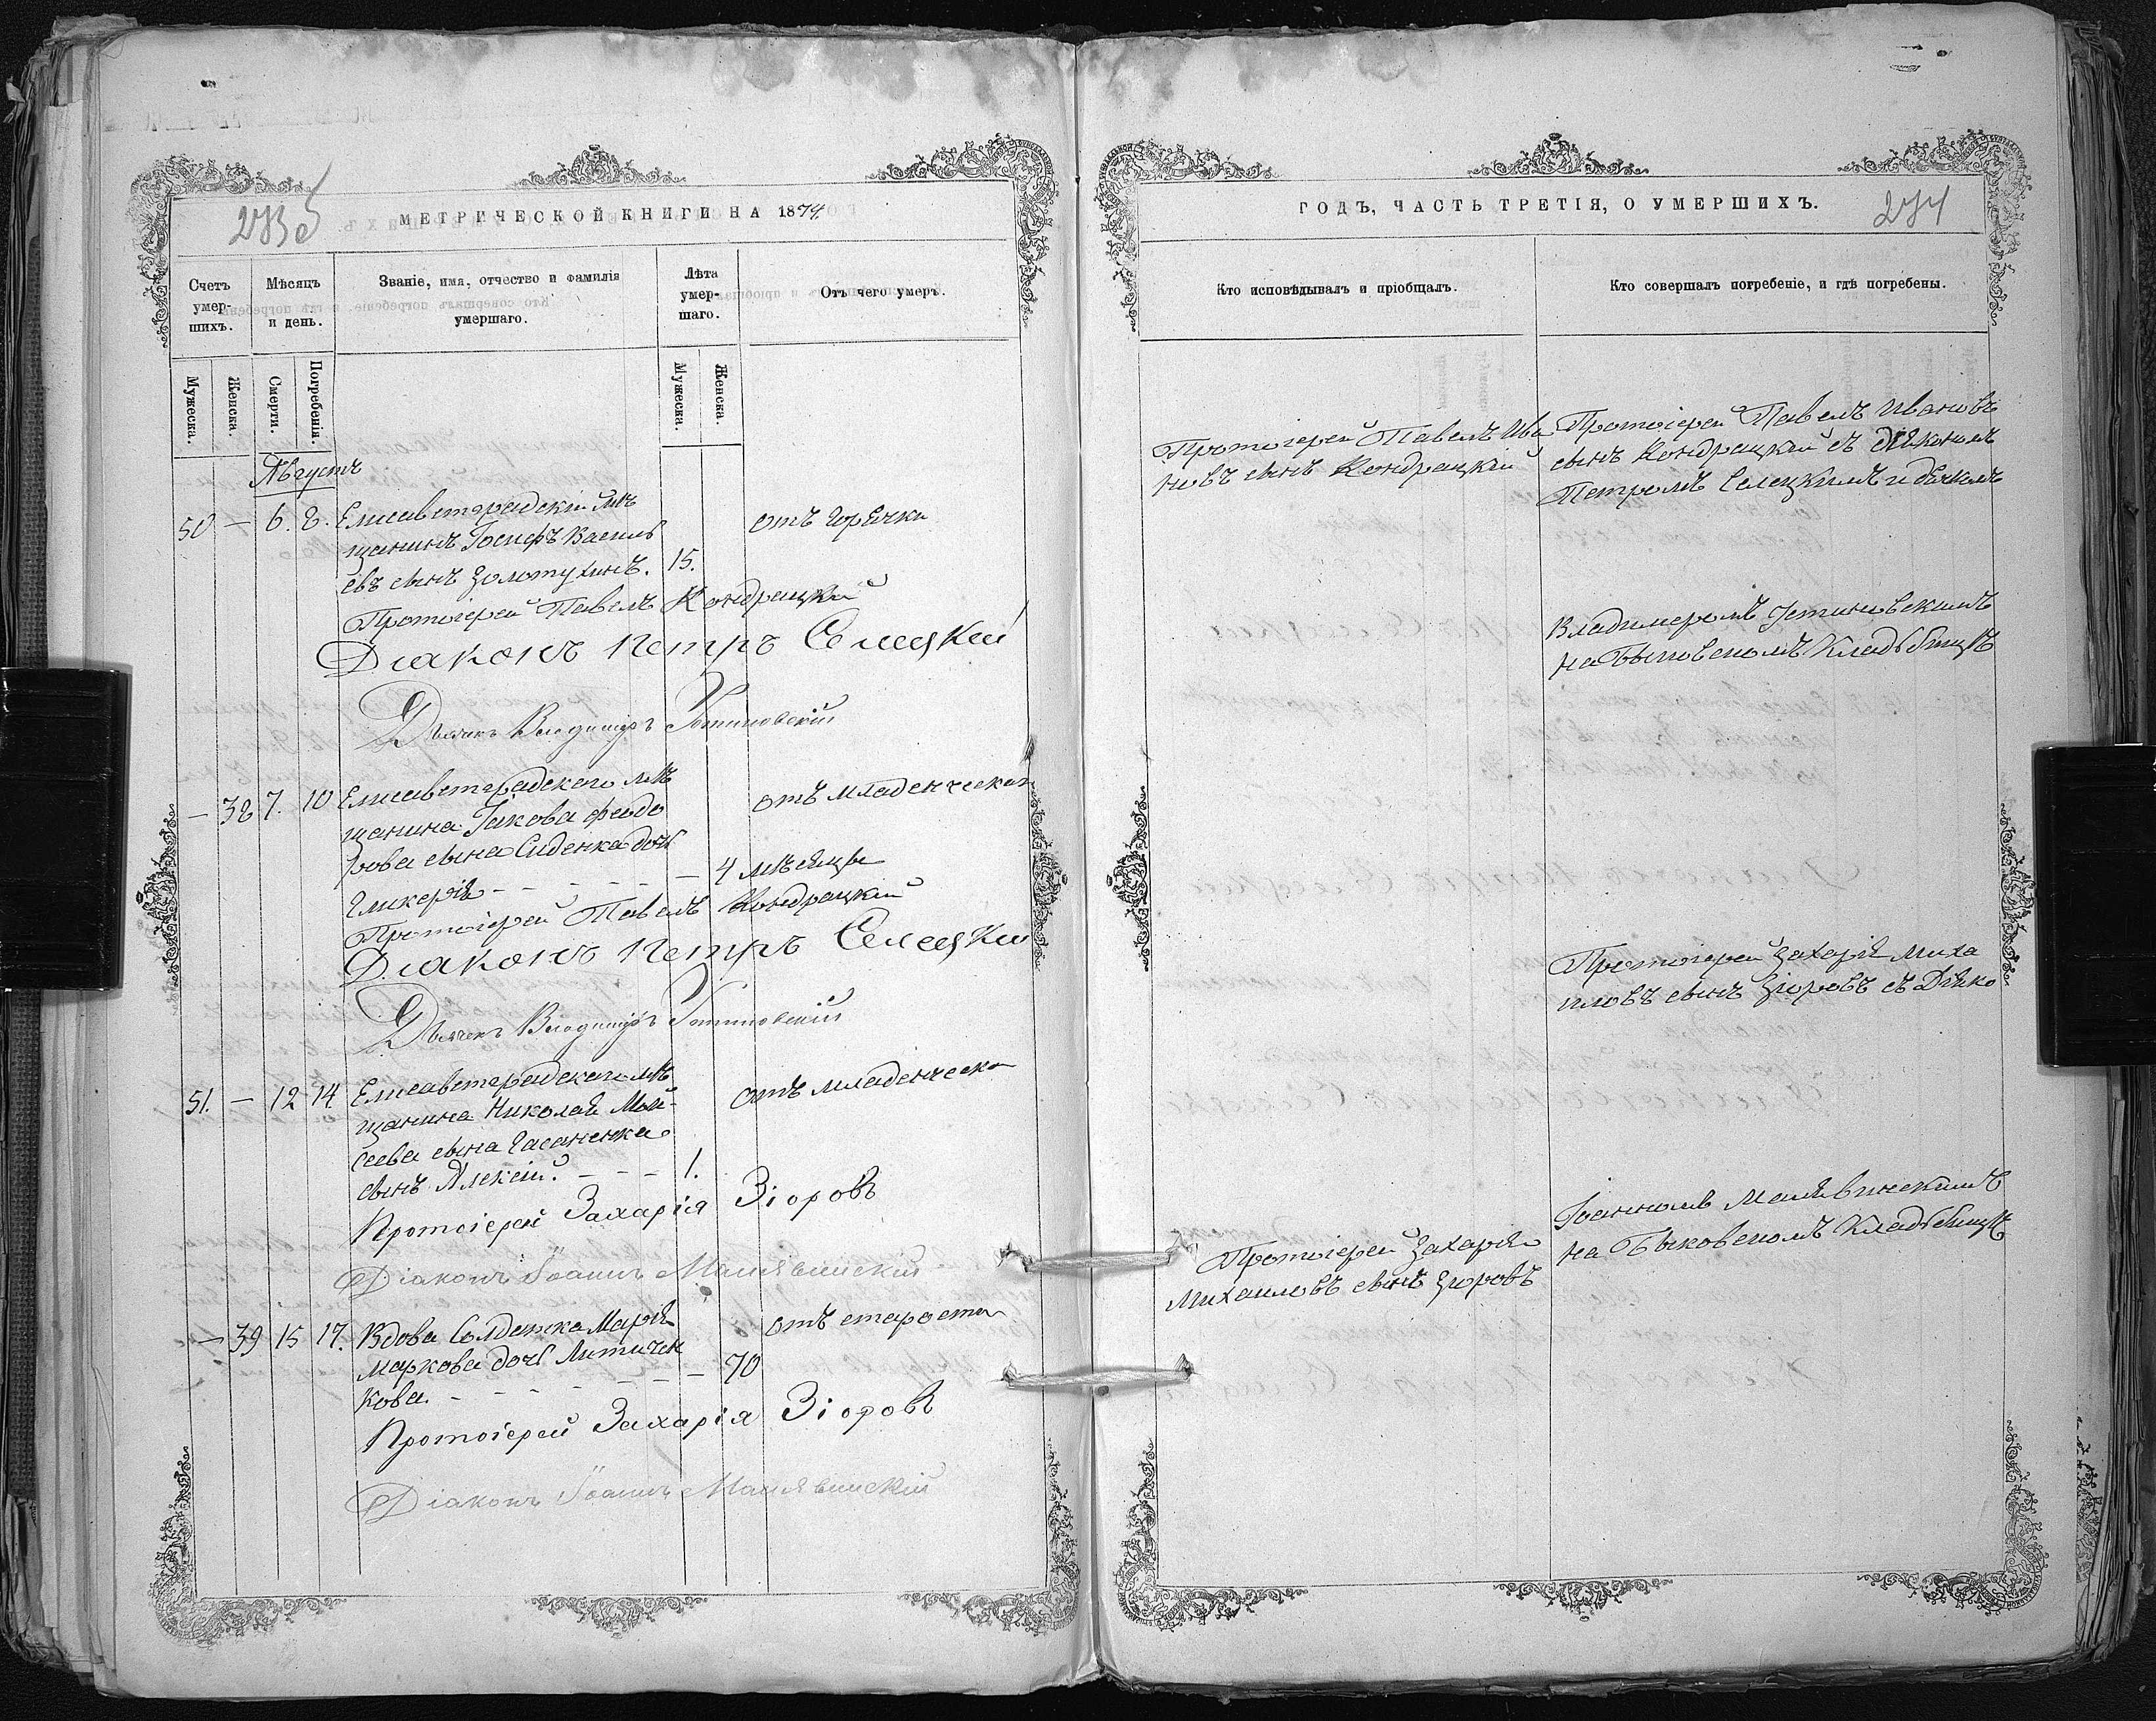 МЕТРИЧЕСКОЙ КНИГИ НА 1874
Счетъ умершихъ.
Мѣсяцъ и день.
Званіе, имя, отчество и фамилія умершаго.
Лѣта умершаго.
Отъ чего умеръ.
Мужеска.
Женска.
Смерти.
Погребенія.
Мужеска.
Женска.
Августъ
50 — 6. 8. Елисаветградскій мѣ
щанинъ Іосифъ Василь
евъ сынъ Золотухинъ. 15.
отъ горячки
Протоіерей Павелъ Кондрацкій
Діаконъ Петръ Селецкій
Дьячекъ Владимиръ Устиновскій
— 38 7. 10 Елисаветградскаго мѣ
щанина Іакова Феодо
рова сына Сиденка дочь
Гликерія — 4 мѣсяцы
отъ младенческой
Протоіерей Павелъ Кондрацкій
Діаконъ Петръ Селецкій
Дьячекъ Владимиръ Устиновскій
51. — 12 14 Елисаветградскаго мѣ
щанина Николая Мои
сеева сына Гасаненка
сынъ Алексій. — 1.
отъ младенческо
Протоіерей Захарія Зіоровъ
Діаконъ Іоаннъ Малявинскій
— 39 15 17. Вдова Солдатка Марія
Маркова дочь Литичен
кова. — 70
отъ старости
Протоіерей Захарія Зіоровъ
Діаконъ Іоаннъ Малявинскій
ГОДЪ, ЧАСТЬ ТРЕТІЯ, О УМЕРШИХЪ.
274
Кто исповѣдывалъ и пріобщалъ.
Кто совершалъ погребеніе, и гдѣ погребены.
Протоіерей Павелъ Ива
новъ сынъ Кондрацкій
Протоіерей Павелъ Ивановъ
сынъ Кондрацкій съ діякономъ
Петромъ Селецкимъ и дьячкомъ
Владимеромъ Устиновскимъ
на Быковскомъ Кладбищѣ
Протоіерей Захарія Миха
иловъ сынъ Зіоровъ съ Діяко
Іоанномъ Малявинскимъ
на Быковскомъ Кладбищѣ
Протоіерей Захарія
Михаиловъ сынъ Зіоровъ